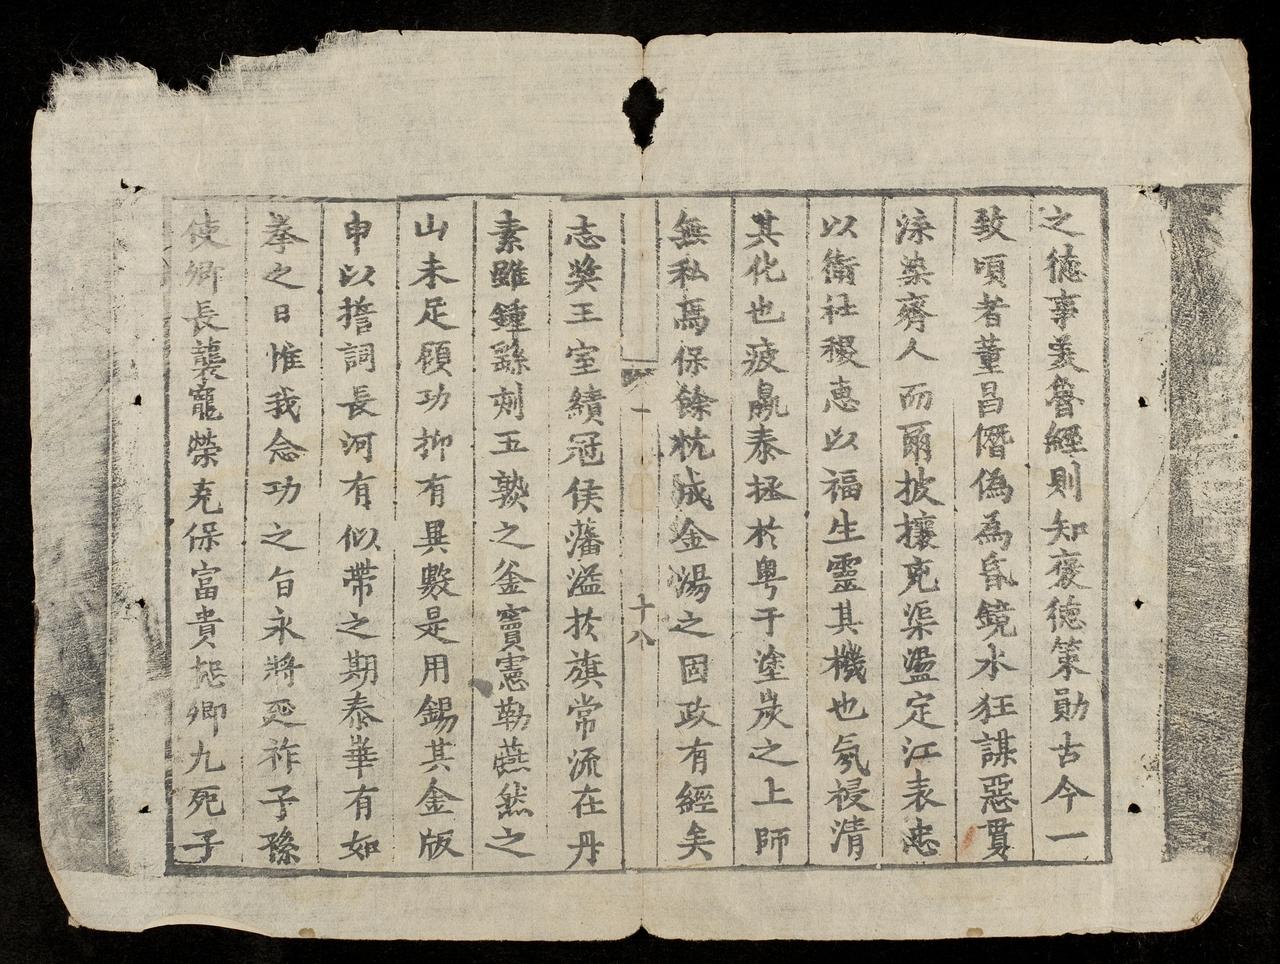 之徳事美魯經則知褒徳策勛古今一
致頃者董昌僭偽為昏鏡水狂謀惡貫
渫染齊人而爾披攘兇渠盪定江表忠
以衛社稷惠以福生靈其機也氛祲清
其化也疲羸泰拯扵粤于塗炭之上師
無私焉保餘杭成金湯之固政有經矣
一
十八
志奬王室績冠侯藩溢扵旗常流在丹
素雖鍾繇刻五熟之釜竇憲勒燕然之
山未足頋功抑有異數是用錫其金版
申以擔詞長河有似帶之期泰華有如
拳之日惟我念功之旨永將延祚子孫
使卿長襲寵榮克保富貴恕卿九死子